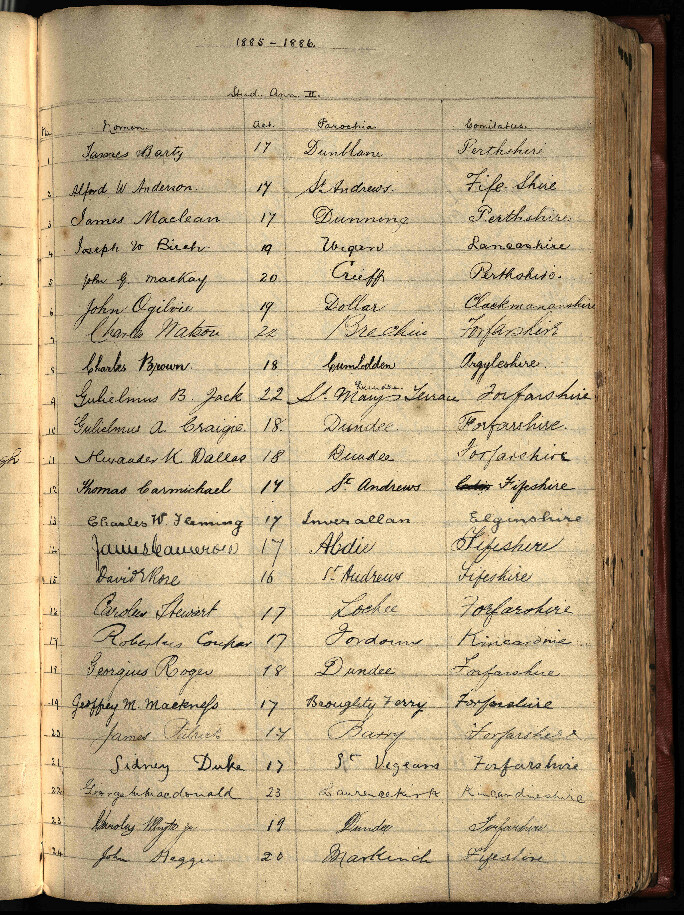 1885-1886.
Stud. Ann. II.
No. Nomen. Aet. Parochia Comitatus.
1 James Barty 17 Dunblane Perthshire
2 Alford W Anderson. 17 St Andrews. Fife Shire
3 James Maclean 17 Dunning Perthshire
4 Joseph W Birch 19 Wigan Lancashire
5 John G. Mackay 20 Crieff Perthshire.
6 John Ogilvie 19 Dollar Clackmananshire
7 Charles 22 Brechin Forfarshire
8 Charles Brown 18 Argyleshire.
9 Gulielmus B. Jack 22 St Mary's Terrace Dundee Forfarshire
10 Gulielmus A. Craigie 18. Dundee Forfarshire.
11 Alexander K Dallas 18 Dundee Forfarshire
gh
12 Thomas Carmichael 17 St Andrews Fifeshire
13 Charles W. Fleming 17 Inverallan Elginshire
14 James Cameron 17 Abdie Fifeshire
15 David Rose 16 St Andrews Fifeshire
16 Carolus Stewart 17 Lochee Forfarshire
17 Robertus Coupar 17 Fordoun Kincardine
18 Georgius Roger 18 Dundee Forfarshire
19 Geoffrey M. Mackness 17 Broughty Ferry Forfarshire
20 James 17 Barry Forfarshire
21 Sidney Duke 17 St Vigeans Forfarshire
22 George Macdonald 23 Laurencekirk Kincardineshire
23 Carolus Whyte jr 19 Dundee Forfarshire
24 John Beggie 20 Markinch Fifeshire